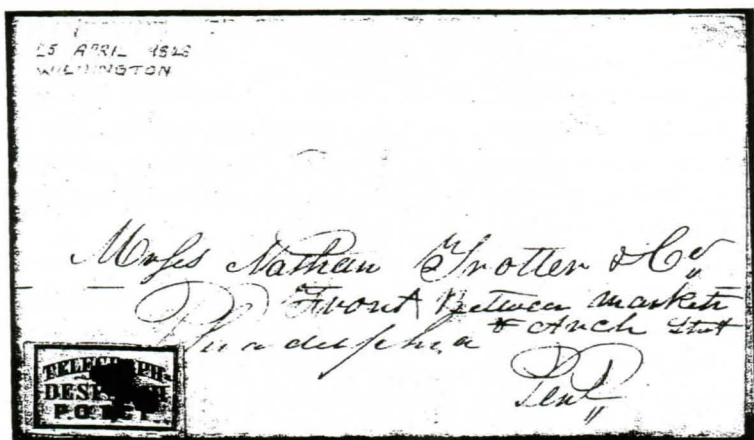 25 APRIL 1848
WILMINGTON
Messs Nathan Trotter & Co
Front Between market
& Arch Street
Philadelphia
Pen
TELEGRAPH
P.O.